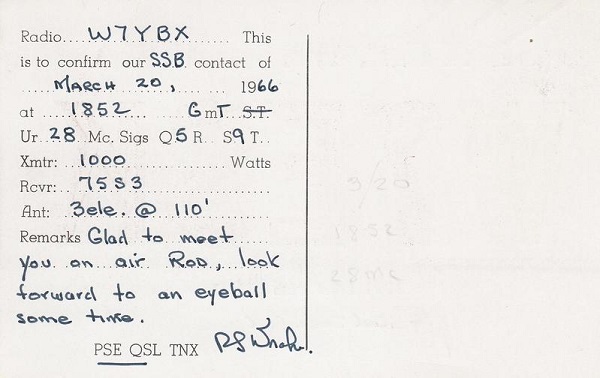 Radio W7YBX This
is to confirm our SSB contact of
MARCH 20, 1966
at 1852 GMT S.T.
Ur 28 Mc. Sigs Q5R S9T
Xmtr: 1000 Watts
Rcvr: 75S3
Ant: 3ele. @ 110'
Remarks Glad to meet
you on air Rod, look
forward to an eyeball
some time.
PSE QSL TNX
3/20
1852
28 Mc